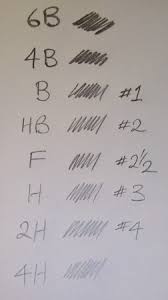 6B
4B
B #1
HB #2
F #2½
H #3
2H #4
4H